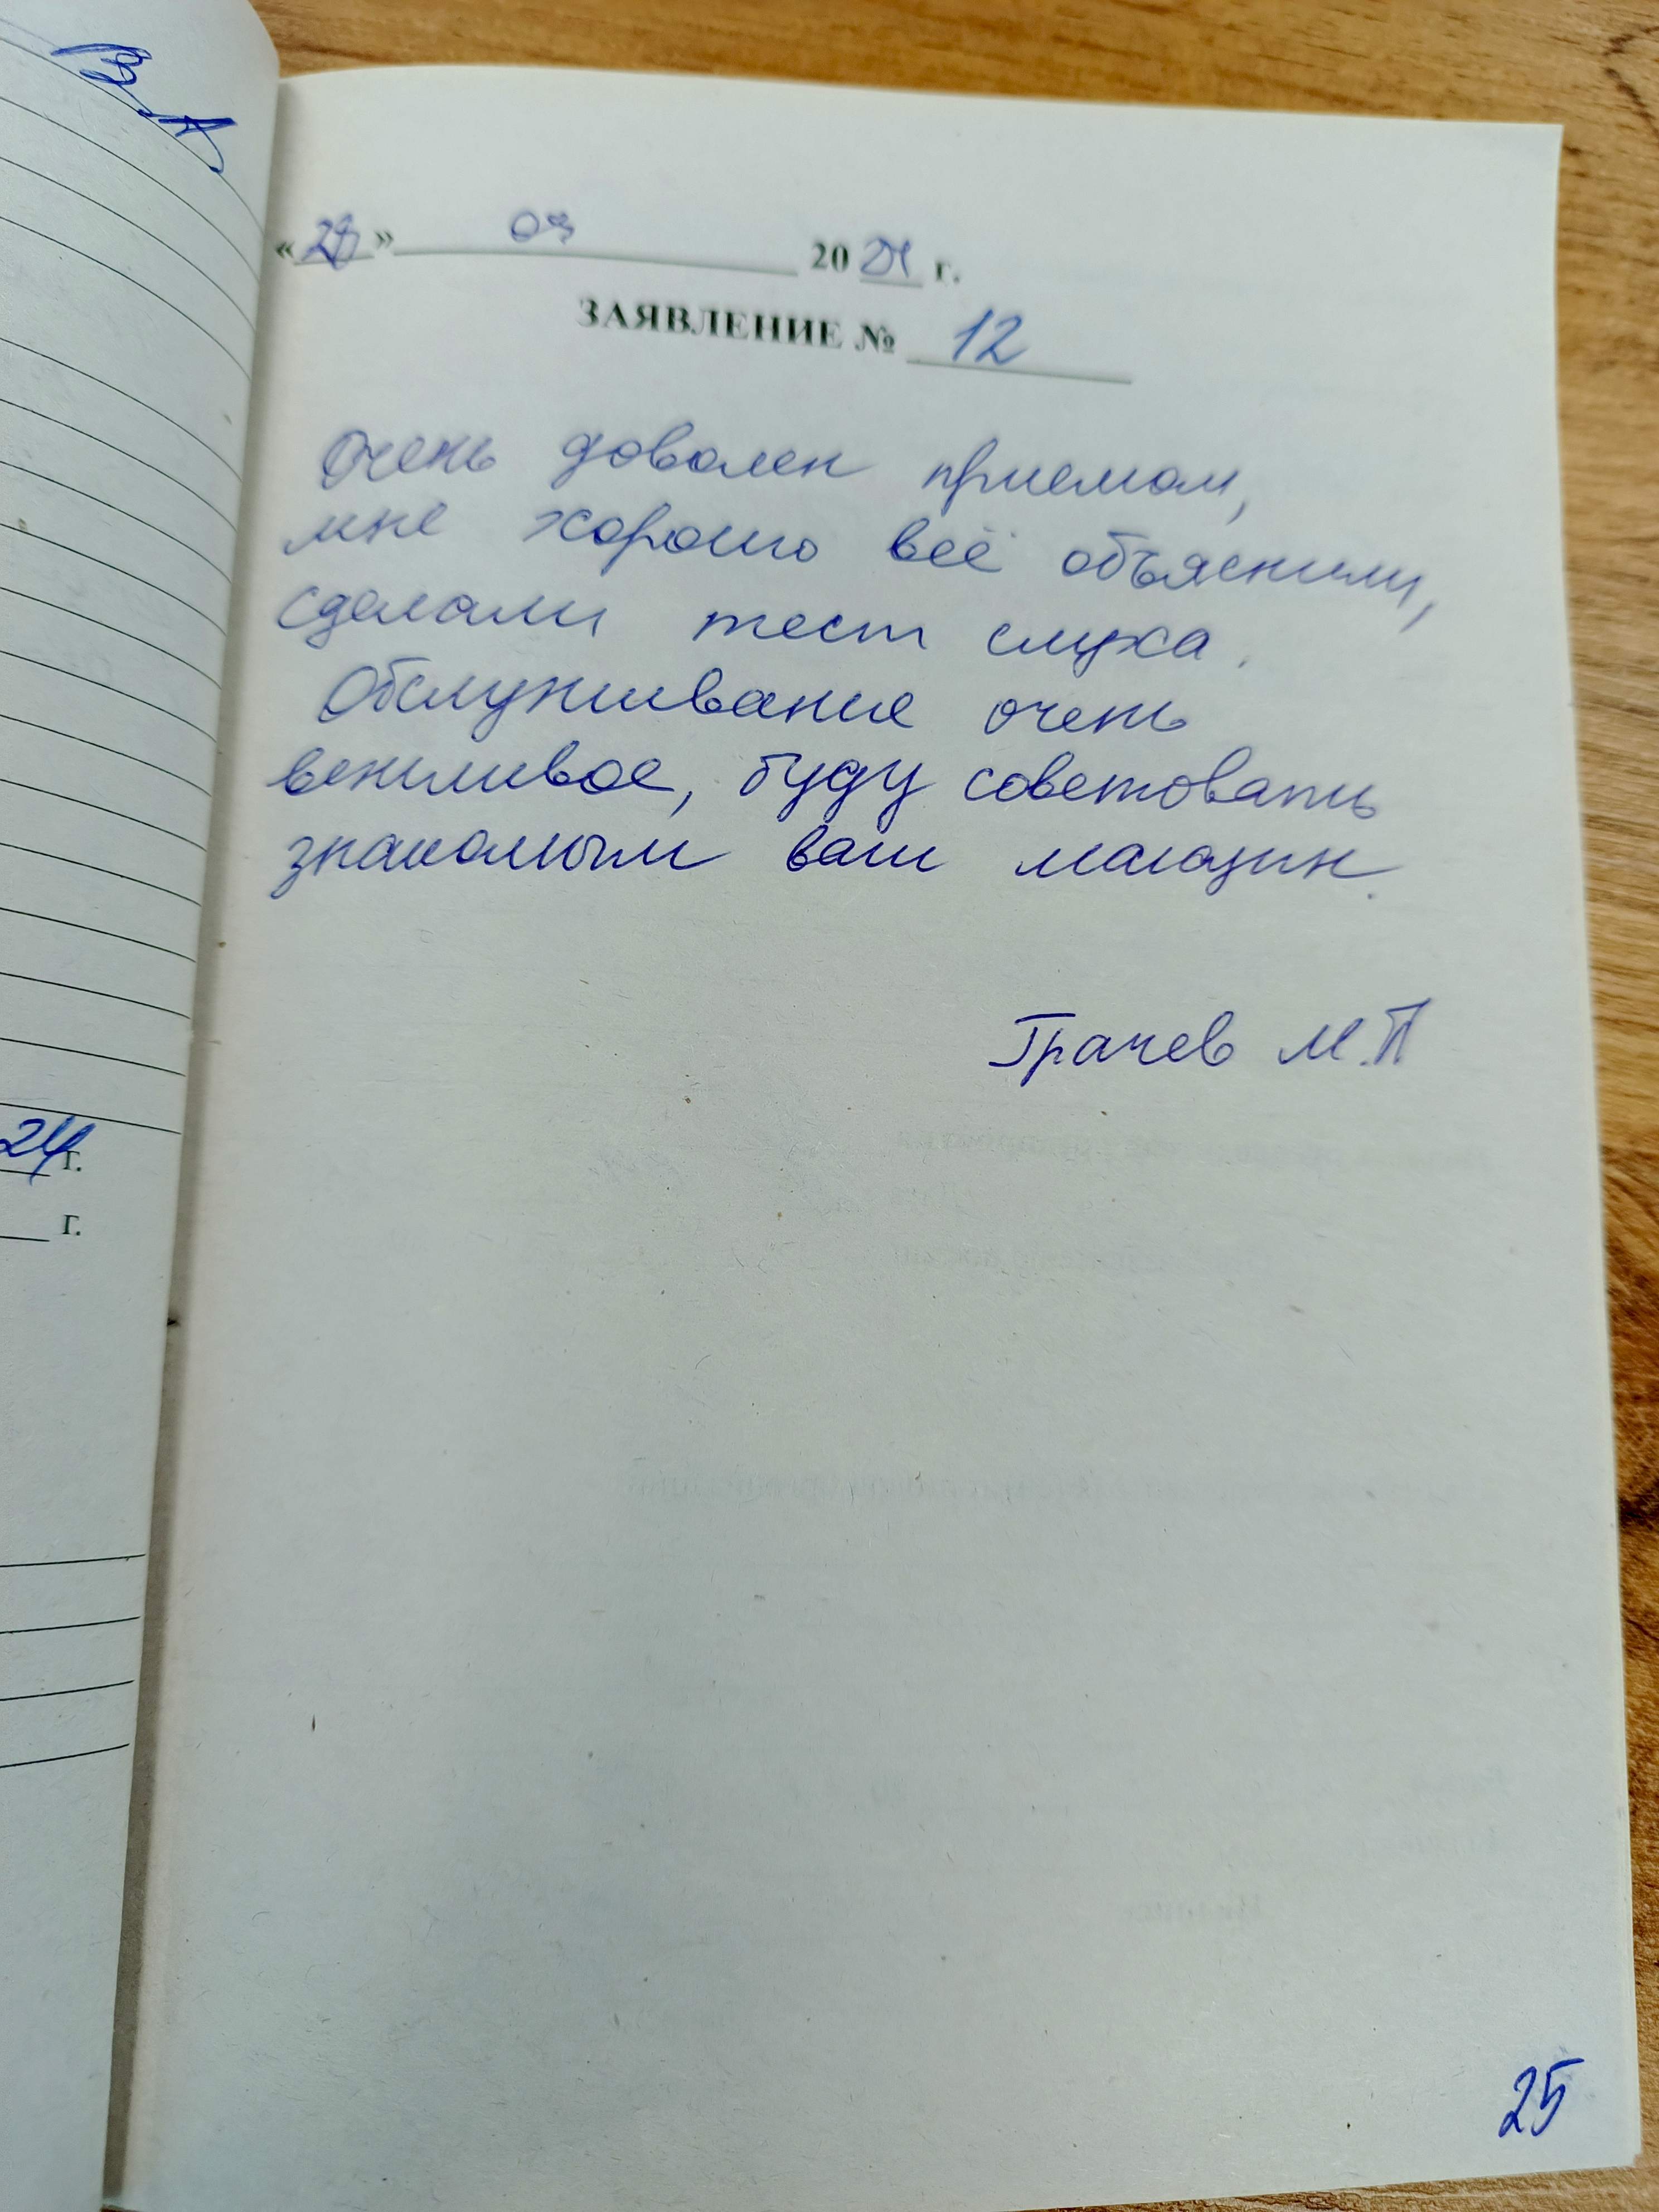 24 г.
г.
« 28 » 03 2024 г.
ЗАЯВЛЕНИЕ № 12
Очень доволен приемом,
мне хорошо всё объяснили,
сделали тест слуха.
Обслуживание очень
вежливое, буду советовать
знакомым ваш магазин.
Грачев М.П
25